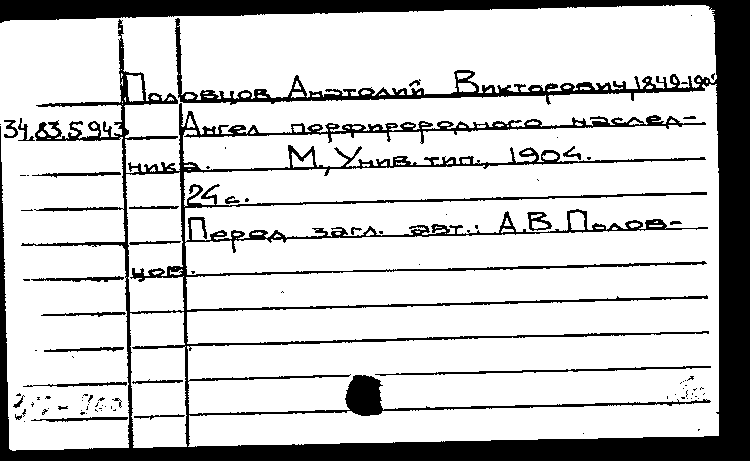 Половцов, Анатолий Викторович, 1849-1905
34.83.5.943 Ангел порфирородного наслед-
ника. М., Унив. тип., 1904.
24 с.
Перед загл. авт.: А.В. Полов-
цов.